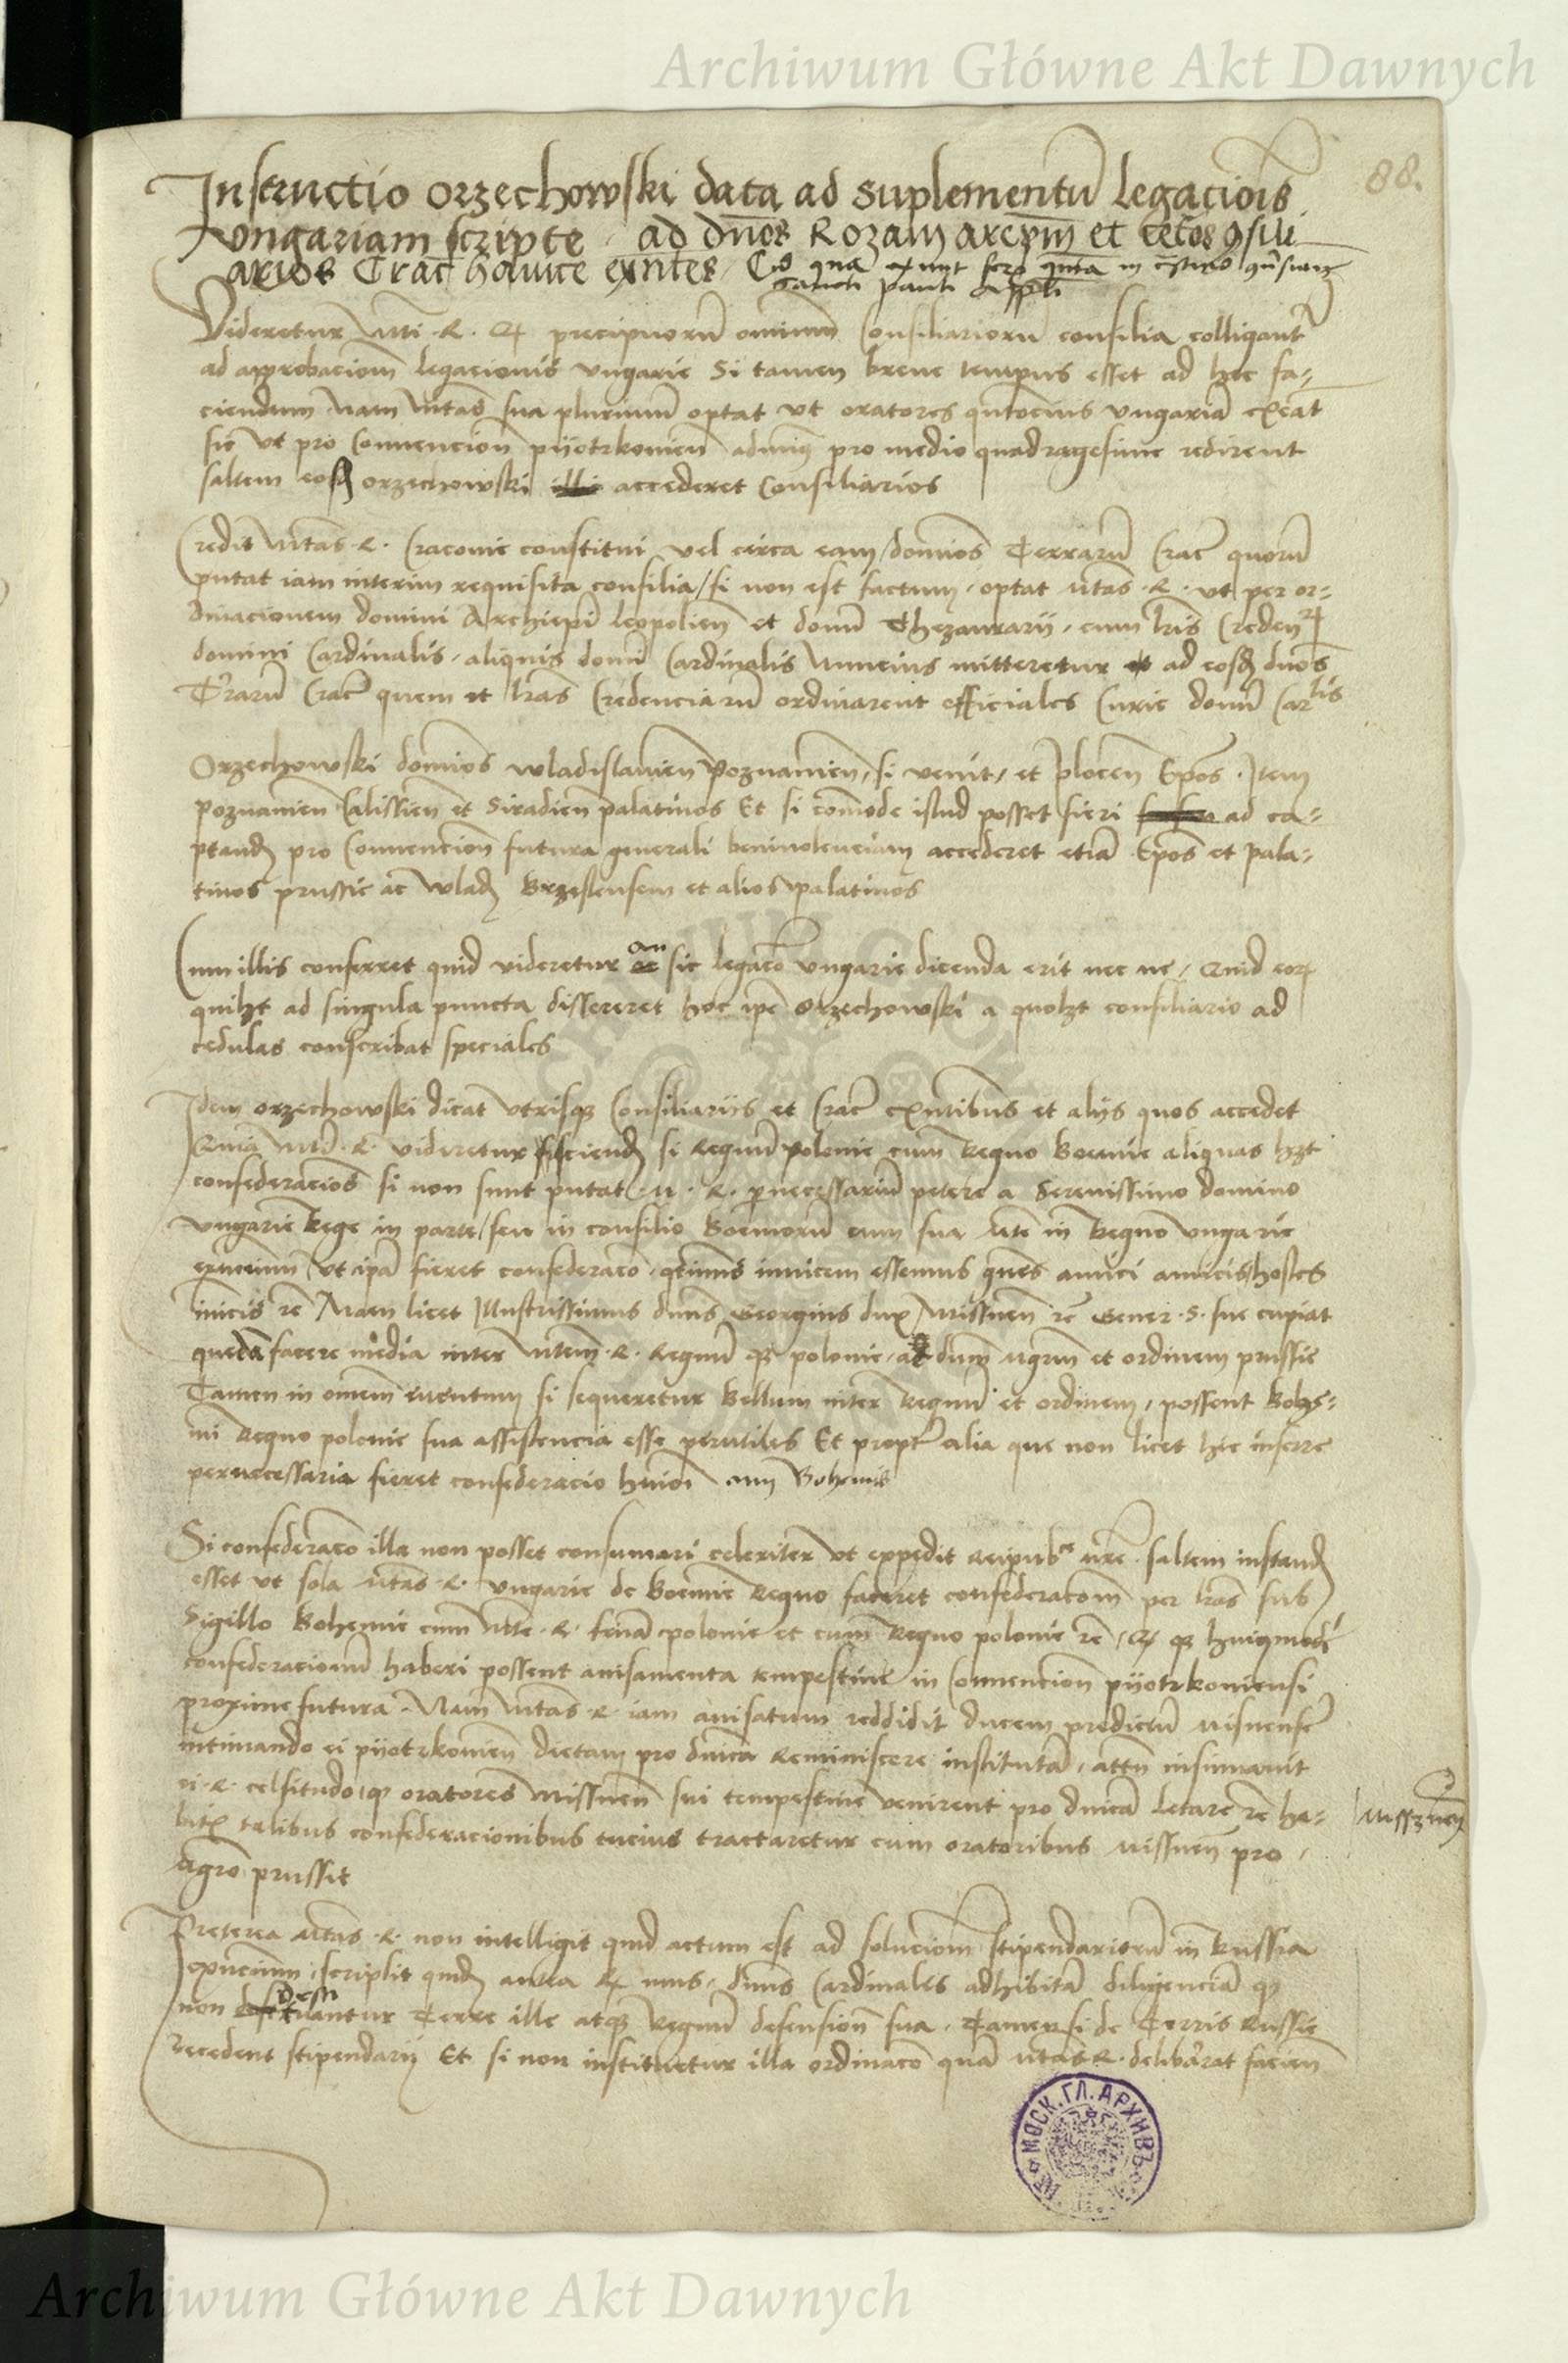 Archiwum Główne Akt Dawnych
88.
Instructio orzechowski data ad suplementū legacionis
ungariam scripte ad dnos Rozam arepm et cetos ɔsili
arios Crac havite exntes
sancti pauli appli
Videretur Mti R. precipuorū omnium Consiliariorū consilia colligant̄
ad approbaciom legacionis ungarie Si tamen breve tempus esset ad hoc fa-
ciendum Nam Mtas sua plurimū optat ut oratores qntocius ungariā exeat
sic ut pro Convencion pyotrkovien adminꝰ pro medio quadragesime redirent
saltem eosd orzechowski accederet Consiliarios
Credit Mtas R. Cracovie constitui vel circa eam dominos Terrarū Crac quorū
putat iam interim requisita consilia / si non est factum optat Mtas R. ut per or-
dinacionem domini Archiepi leopolien et domi Thezaurarii cum lris Creden
domini Cardinalis aliquis domi Cardinalis Nuncius mitteretur ad eosd dnos
Trarū Crac quem et lras Credenciarū ordinarent officiales Curie domi Carlis
Orzechowski dominos wladislavien Poznanien, si venit, et plocen Epos Item
poznanien Calissien et Siradien palatinos Et si cōmode istud posset fieri ad ca-
ptand pro Convencion futura generali benivolenciam accederet etiā Epos et pala-
tinos prussie ac wlad Brzestensem et alios palatinos
Cum illis conferret quid videretur an sic legacō ungarie dicenda erit nec ne, Quid eorꝝ
quilzt ad singula puncta dissereret hoc ipe Orzechowski a quolzt consiliario ad
cedulas conscribat speciales
Idem orzechowski dicat utrisqꝫ Consiliariis et Crac exntibus et aliis quos accedet
Quia Mti R. videretur sciend si Regnū Polonie cum Regno Boemie aliquas hzt
confederacios si non sunt putat M. R. pernecessariū petere a Serenissimo domino
ungarie Rege in parte / seu in consilio Boemorū cum sua Mte in Regno ungarie
exncium ut ipā fieret confederacō invicem essemus amici amicis hostes
inimicis rē Nam licet Illustrissimus dnus Georgius dux Missnen rē Gener. S. sue cupiat
quedā facere media inter Mtem R. Regnū qꝫ polonie, ac dum mgrum et ordinem prussie
Tamen in omem eventum si sequeretur Bellum inter Regnū et ordinem, possent Bohe-
mi Regno polonie sua assistencia esse perutiles Et propt alia que non licet hic inserre
pernecessaria fieret confederacio hmoi cum Bohemis
Si confederacō illa non posset consumari celeriter ut expedit Reipubce nre saltem instand
esset ut sola Mtas R. ungarie de Boemie Regno faceret confederacom per lras sub
Sigillo Bohemie cum Mte R. polonie et cum Regno polonie rē, qꝫ huiqmodi
confederacionū haberi possent avisamenta tempestive in Convencion pyotrkoviensi
proxime futura. Nam Mtas R iam avisatum reddidit ducem predictū Misnensē
intimando ei pyotrkovien dietam pro dnica Reminiscere institutā, attn insinuavit
ei R. celsitudo, qꝫ oratores Missnen sui tempestive venirent pro dnica letare rē ha-
bitis talibus confederacionibus tucius tractaretur cum oratoribus Missnen pro
Misznen
Mgro prussie
Preterea Mtas R. non intelligit quid actum est ad solucionm stipendariorū in Russia
exncium, scripsit quid dnus Cardinalis adhibitā diligenciā qꝫ
non destituantur Terre ille atqꝫ Regnū defension sua. Tamen si de Terris Russie
recedent stipendarii Et si non instituetur illa ordinacō quā Mtas R. delibarat facien
МОСК. ГЛ. АРХИВЪ
Archiwum Główne Akt Dawnych